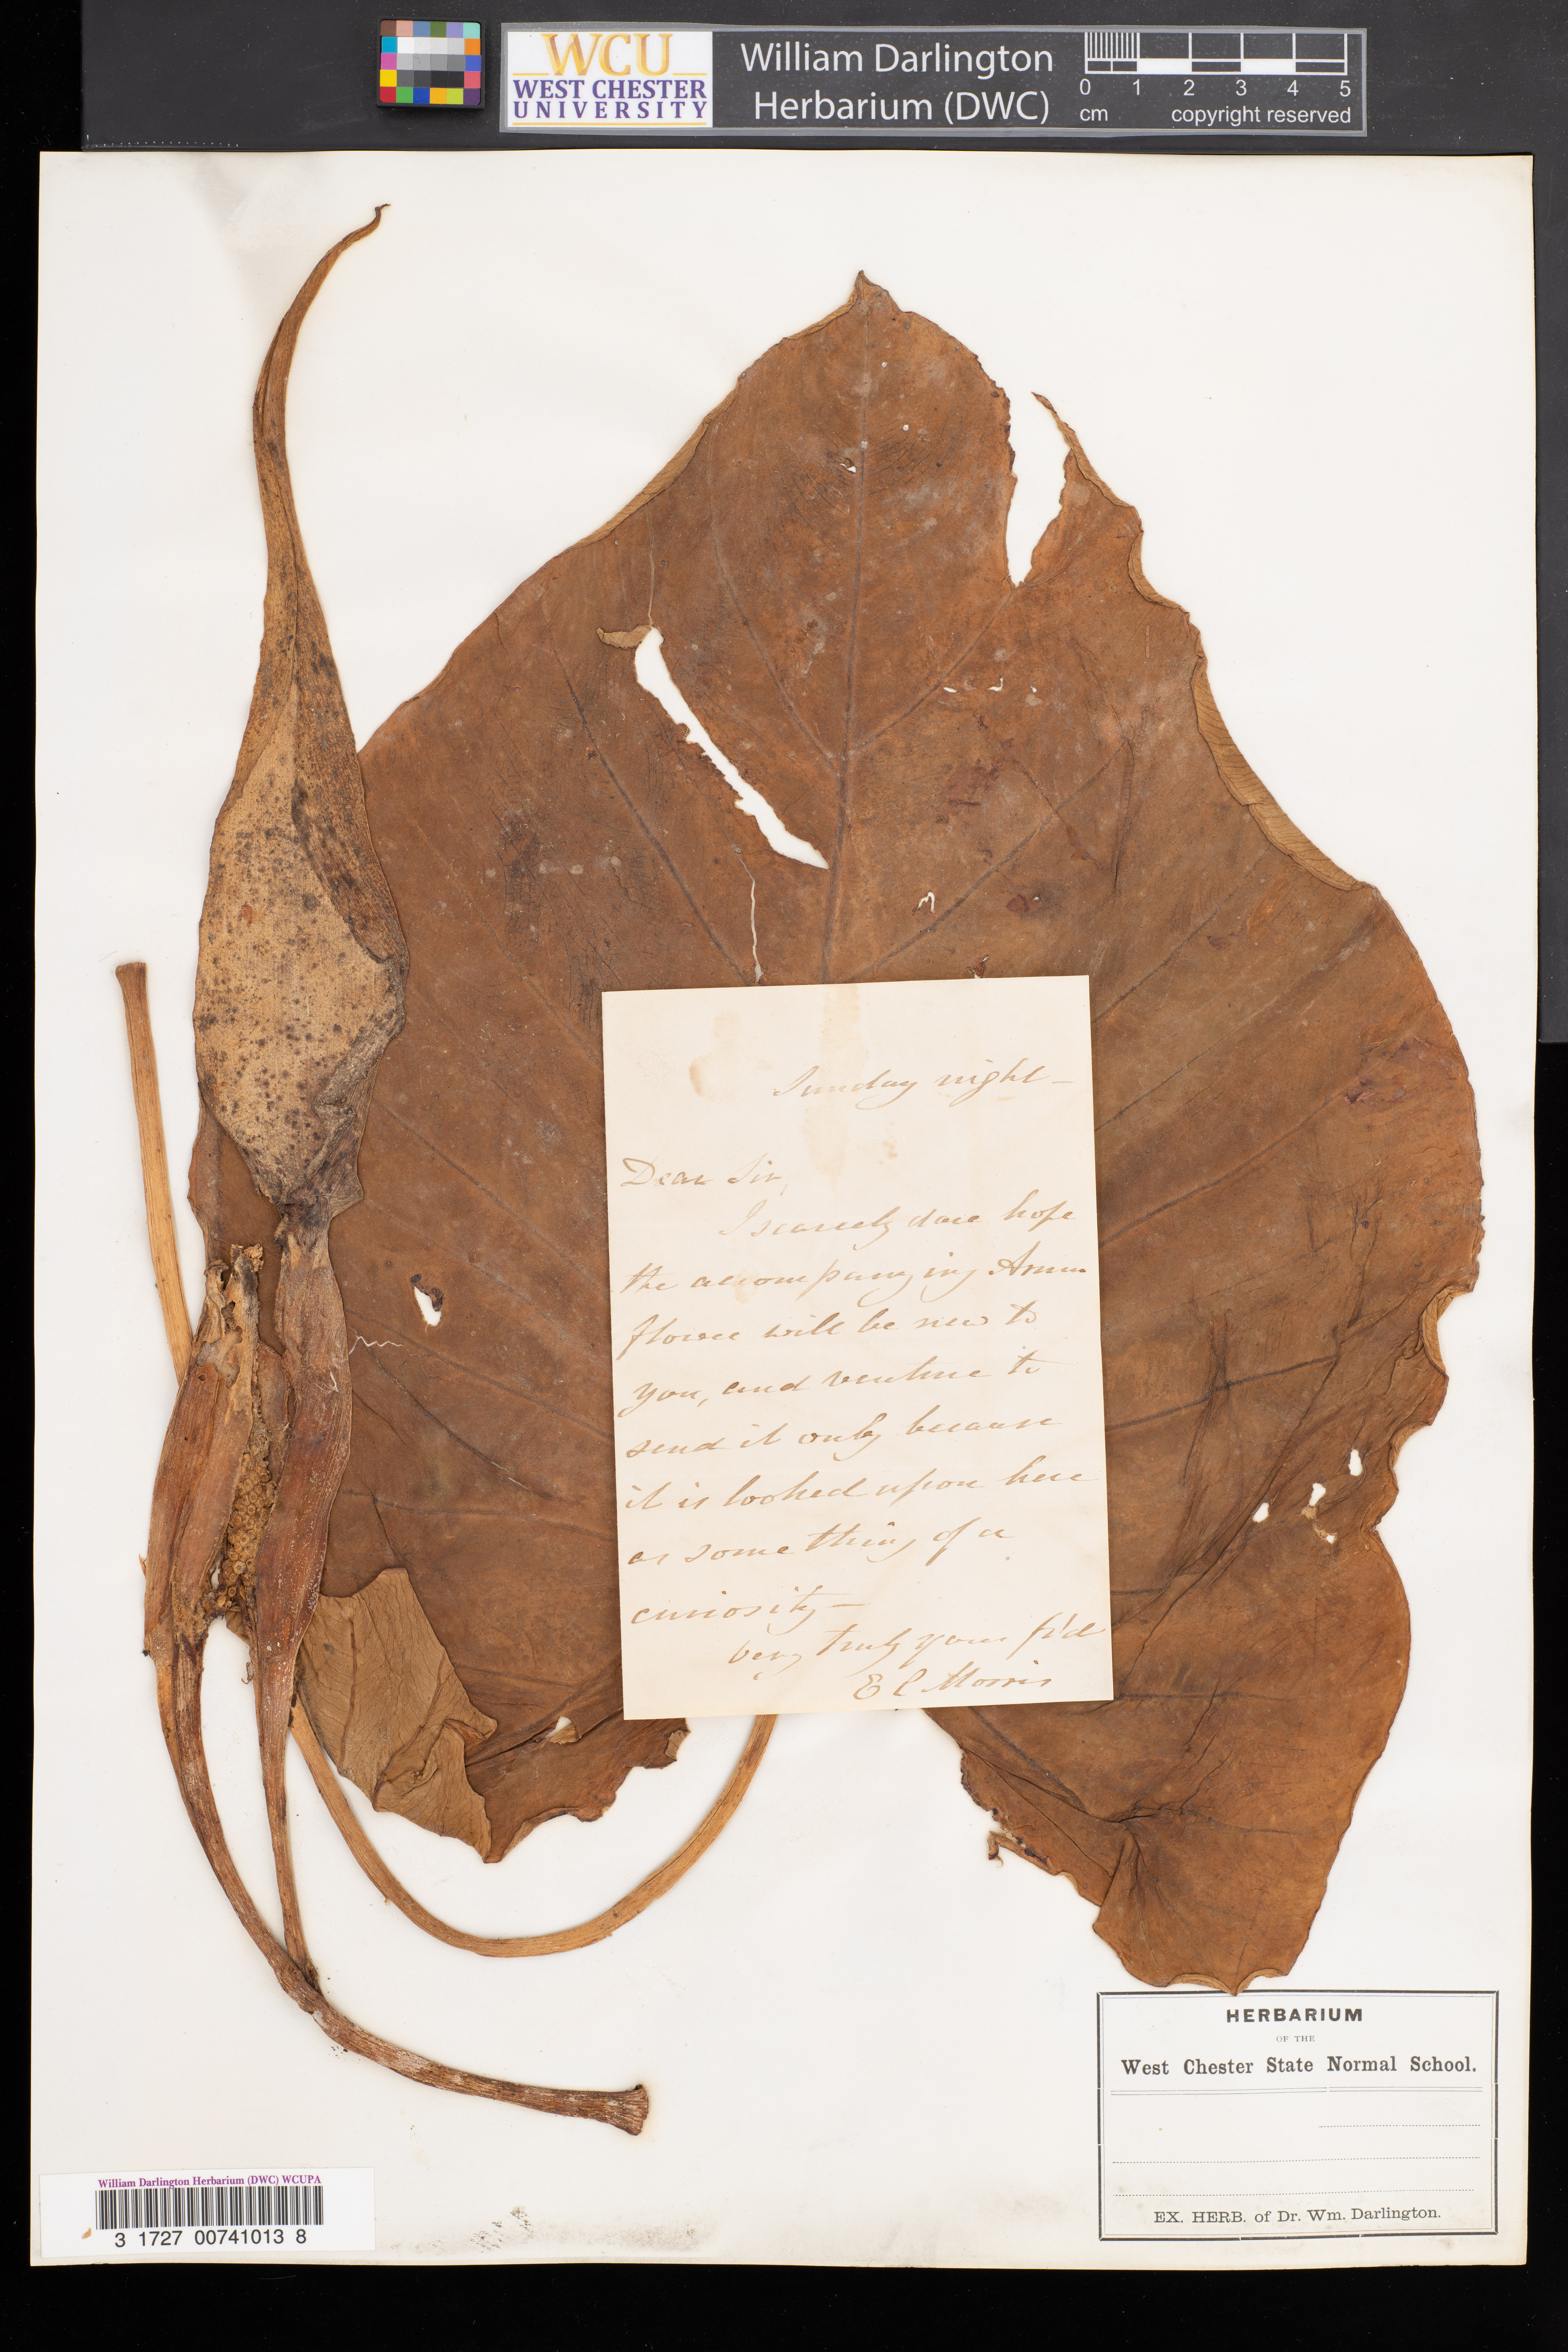 WCU
WEST CHESTER
UNIVERSITY
William Darlington
Herbarium (DWC)
0 1 2 3 4 5
cm copyright reserved
Sunday night –
Dear Sir,
I scarcely dare hope
the accompanying Arum
flower will be new to
you, and venture to
send it only because
it is looked upon here
as something of a
curiosity –
very truly your fr'd
E C Morris
HERBARIUM
OF THE
West Chester State Normal School.
EX. HERB. of Dr. Wm. Darlington.
William Darlington Herbarium (DWC) WCUPA
3 1727 00741013 8